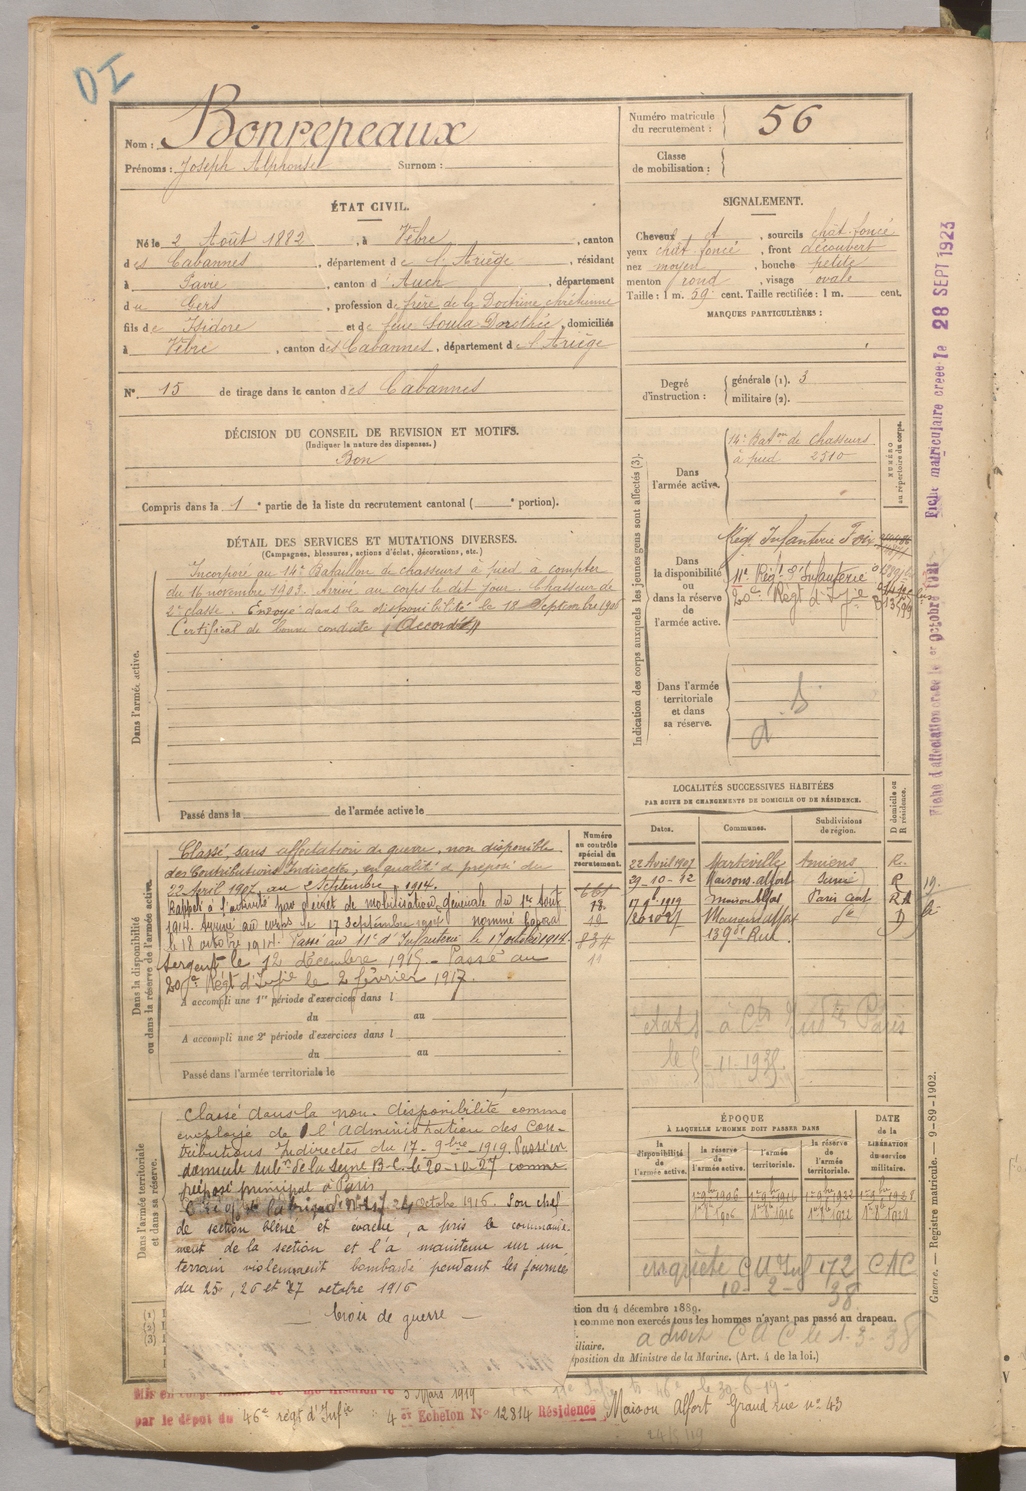 DI
Nom : Bonrepeaux
Prénoms : Joseph Alphonse Surnom :
Numéro matricule du recrutement : 56
Classe de mobilisation :
ÉTAT CIVIL.
Né le 2 Août 1882, à Vèbre, canton
des Cabannes, département de l'Ariège, résidant
à Pavie, canton d'Auch, département
du Gers, profession de frère de la Doctrine chrétienne
fils de Isidore et de feue Soula Dorothée, domiciliés
à Vèbre, canton des Cabannes, département de l'Ariège
N° 15 de tirage dans le canton des Cabannes
SIGNALEMENT.
Cheveux et, sourcils chât. foncé
yeux chât. foncé, front découvert
nez moyen, bouche petite
menton rond, visage ovale
Taille : 1 m. 59 cent. Taille rectifiée : 1 m. cent.
MARQUES PARTICULIÈRES :
Degré d'instruction : générale (1). 3
militaire (2).
DÉCISION DU CONSEIL DE REVISION ET MOTIFS.
(Indiquer la nature des dispenses.)
Bon
Compris dans la 1e partie de la liste du recrutement cantonal ( e portion).
DÉTAIL DES SERVICES ET MUTATIONS DIVERSES.
(Campagnes, blessures, actions d'éclat, décorations, etc.)
Dans l'armée active.
Incorporé au 14e Bataillon de chasseurs à pied à compter
du 16 novembre 1903. Arrivé au corps le dit jour. Chasseur de
2e classe. Envoyé dans la disponibilité le 18 Septembre 1906
Certificat de bonne conduite "Accordé"
Passé dans la de l'armée active le
Indication des corps auxquels les jeunes gens sont affectés (3).
NUMÉRO au répertoire du corps.
Dans l'armée active.
14e Baton de chasseurs
à pied 2510
Dans la disponibilité ou dans la réserve de l'armée active.
Régt Infanterie Foix
11e Régt d'Infanterie
20e Régt d'Infie
Dans l'armée territoriale et dans sa réserve.
LOCALITÉS SUCCESSIVES HABITÉES
PAR SUITE DE CHANGEMENTS DE DOMICILE OU DE RÉSIDENCE.
Dates. Communes. Subdivisions de région. D domicile ou R résidence.
22 Avril 1907 Marteville Amiens R
29-10-12 Maisons-Alfort Seine R
17 9bre 1919 Maison Alfort Paris cent
139 Gde Rue
Dans la disponibilité ou dans la réserve de l'armée active.
Numéro au contrôle spécial du recrutement.
Classé, sans affectation de guerre, non disponible
des Contributions Indirectes, en qualité de préposé du
22 Avril 1907 au 2 Septembre 1914.
Rappelé à l'activité par décret de mobilisation générale du 1er Août
1914. Arrivé au corps le 17 Septembre 1914 nommé Caporal
le 18 octobre 1914. Passé au 11e d'Infanterie le
Sergent le 12 décembre 1915. Passé au
20e Régt d'Infie le 2 février 1917.
A accompli une 1re période d'exercices dans l
du au
A accompli une 2e période d'exercices dans l
du au
Passé dans l'armée territoriale le
le 5-11-1938
Dans l'armée territoriale et dans sa réserve.
Classé dans la non-disponibilité comme
employé de l'Administration des Con-
tributions Indirectes du 17-9bre 1919. Passé en
domicile subon de la Seine B.C. le 20-10-27 comme
préposé principal à Paris
24 octobre 1916. Son chef
de section blessé et évacué, a pris le commande-
ment de la section et l'a maintenue sur un
terrain violemment bombardé pendant les journées
du 25, 26 et 27 octobre 1916
Croix de guerre
ÉPOQUE
À LAQUELLE L'HOMME DOIT PASSER DANS
la disponibilité de l'armée active. la réserve de l'armée active. l'armée territoriale. la réserve de l'armée territoriale.
DATE de la LIBÉRATION du service militaire.
enquête
10-2-38
a droit CAC le 1-3-38
(1)
(2)
(3)
tion du 4 décembre 1889.
comme non exercés tous les hommes n'ayant pas passé au drapeau.
iliaire.
position du Ministre de la Marine. (Art. 4 de la loi.)
Mis en congé le 5 Mars 1919
par le dépôt du 46e régt d'Infie 4e Échelon N° 12814 Résidence Maison Alfort Grand rue n° 43
Fiche matriculaire créée le 28 SEPT 1923
Fiche d'affectation créée le 1er Octobre 1921
Guerre. — Registre matricule. — 9-89-1902.